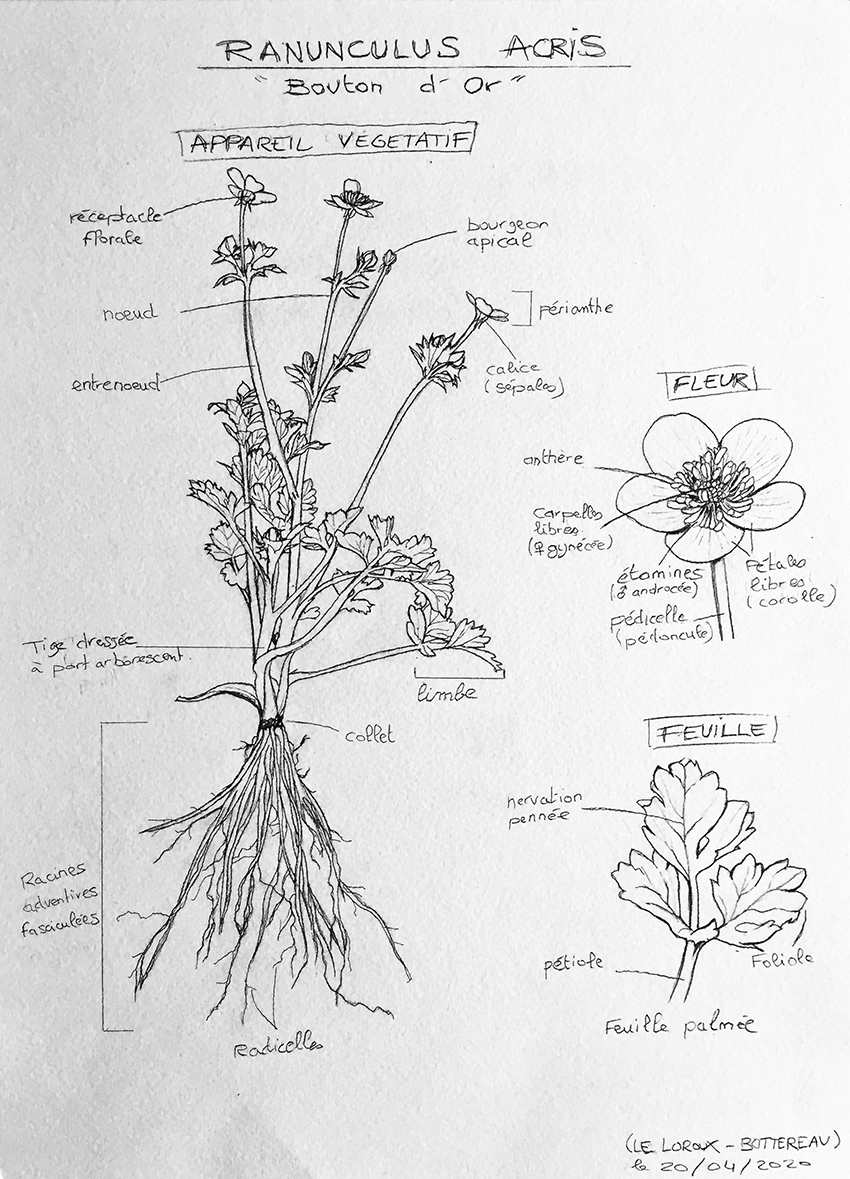 RANUNCULUS ACRIS
"Bouton d'Or"
APPAREIL VÉGETATIF
réceptacle
florale
bourgeon
apical
noeud
périanthe
entrenoeud
calice
(sépales)
Tige dressée
à port arborescent.
limbe
collet
Racines
adventives
fasciculées
Radicelles
FLEUR
anthère
Carpelles
libres
(♀ gynécée)
étamines
(♂ androcée)
Pétales
libres
(corolle)
pédicelle
(pédoncule)
FEUILLE
nervation
pennée
pétiole
Foliole
Feuille palmée
(LE LOROUX - BOTTEREAU)
le 20/04/2020